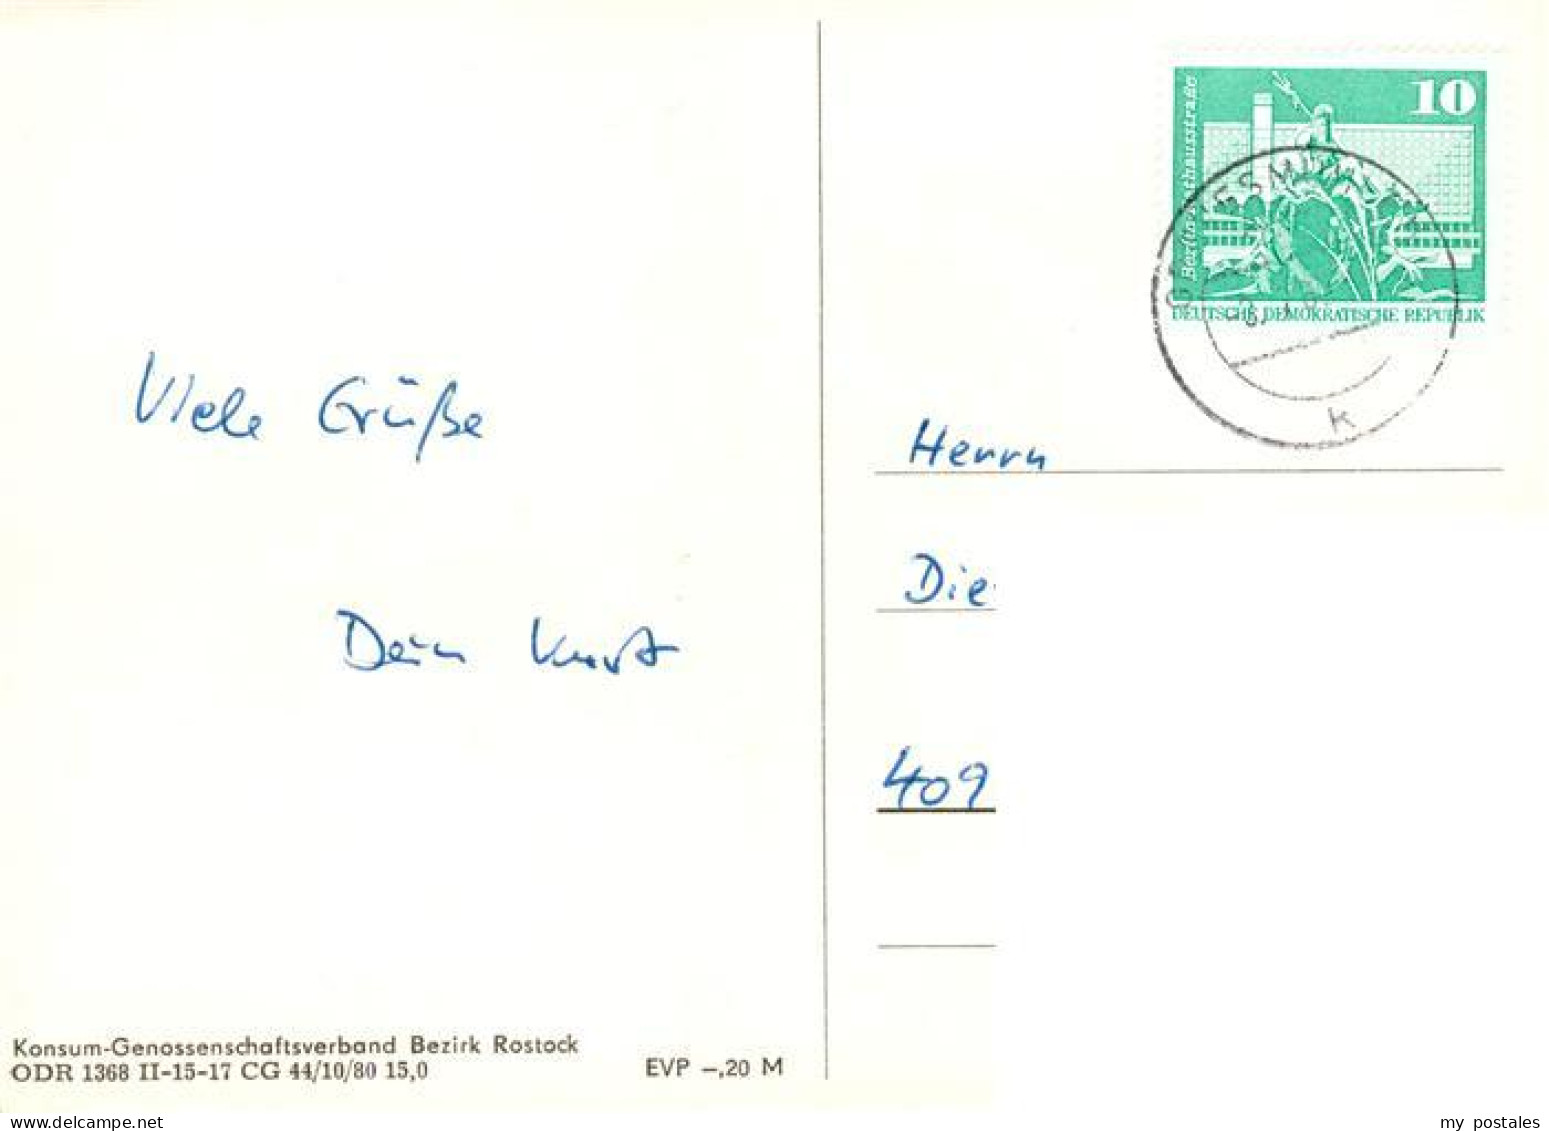 10
Berlin-Rathausstraße
DEUTSCHE DEMOKRATISCHE REPUBLIK
k
Viele Grüße
Dein Kurt
Herrn
Die
409
Konsum-Genossenschaftsverband Bezirk Rostock
ODR 1368 II-15-17 CG 44/10/80 15,0
EVP –,20 M
delcampe.net
my postales